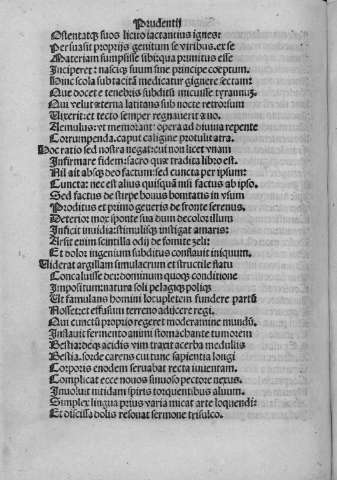 Prudentij
Ostentatqȝ suos licito iactantius ignes:
Persuasit proprijs genitum se viribus. ex se
Materiam sumpsisse sibi: qua primitus esse
Inciperet: nasciqȝ suum sine principe coeptum.
Hinc scola subtacitā medicatur gignere sectam:
Que docet e tenebris subditū micuisse tyrannuȝ.
Qui velut eterna latitans sub nocte retrorsum
Vixerit: et tecto semper regnauerit euo.
Aemulus: vt memorant: opera ad diuina repente
Corrumpenda. caput caligine protulit atra.
Hoc ratio sed nostra negat: cui non licet vnam
Infirmare fidem: sacro que tradita libro est.
Nil ait absqȝ deo factum: sed cuncta per ipsum:
Cuncta: nec est alius quisquā nisi factus ab ipso.
Sed factus de stirpe bonus bonitatis in vsum
Proditus et primo generis de fronte serenus.
Deterior mox sponte sua dum decolor illum
Inficit inuidia: stimulisqȝ instigat amaris:
Arsit enim scintilla odij de fomite zeli:
Et dolor ingenium subditus conflauit iniquum.
Uiderat argillam simulacrum et structile flatu
Concaluisse dei: dominum quoqȝ conditione
Impositum: natura soli pelagiqȝ poliqȝ
Vt famulans homini locupletem fundere partū
Nosset: et effusum terreno adijcere regi.
Qui cunctū proprio regeret moderamine mundū.
Inflauit fermento animi stomachante tumorem
Bestia: deqȝ acidis vim traxit acerba medullis
Bestia. sorde carens cui tunc sapientia longi
Corporis enodem seruabat recta iuuentam.
Complicat ecce nouos sinuoso pectore nexus.
Inuoluit nitidam spiris torquentibus aluum.
Simplex lingua prius varia micat arte loquendi:
Et discissa dolis resonat sermone trisulco.